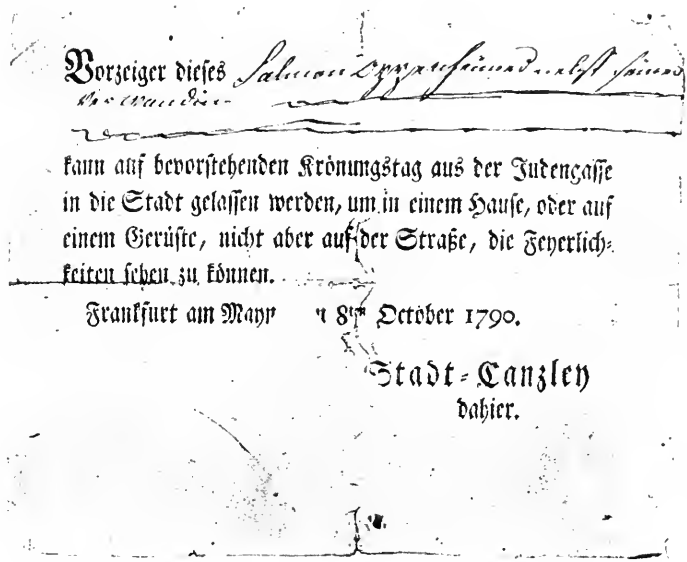 Vorzeiger dieses Salmon Oppenheimer nebst seiner
Verwandin
kann auf bevorstehenden Krönungstag aus der Judengasse
in die Stadt gelassen werden, um in einem Hause, oder auf
einem Gerüste, nicht aber auf der Straße, die Feyerlich-
keiten sehen zu können.
Frankfurt am Mayn 8ten October 1790.
Stadt-Canzley
dahier.